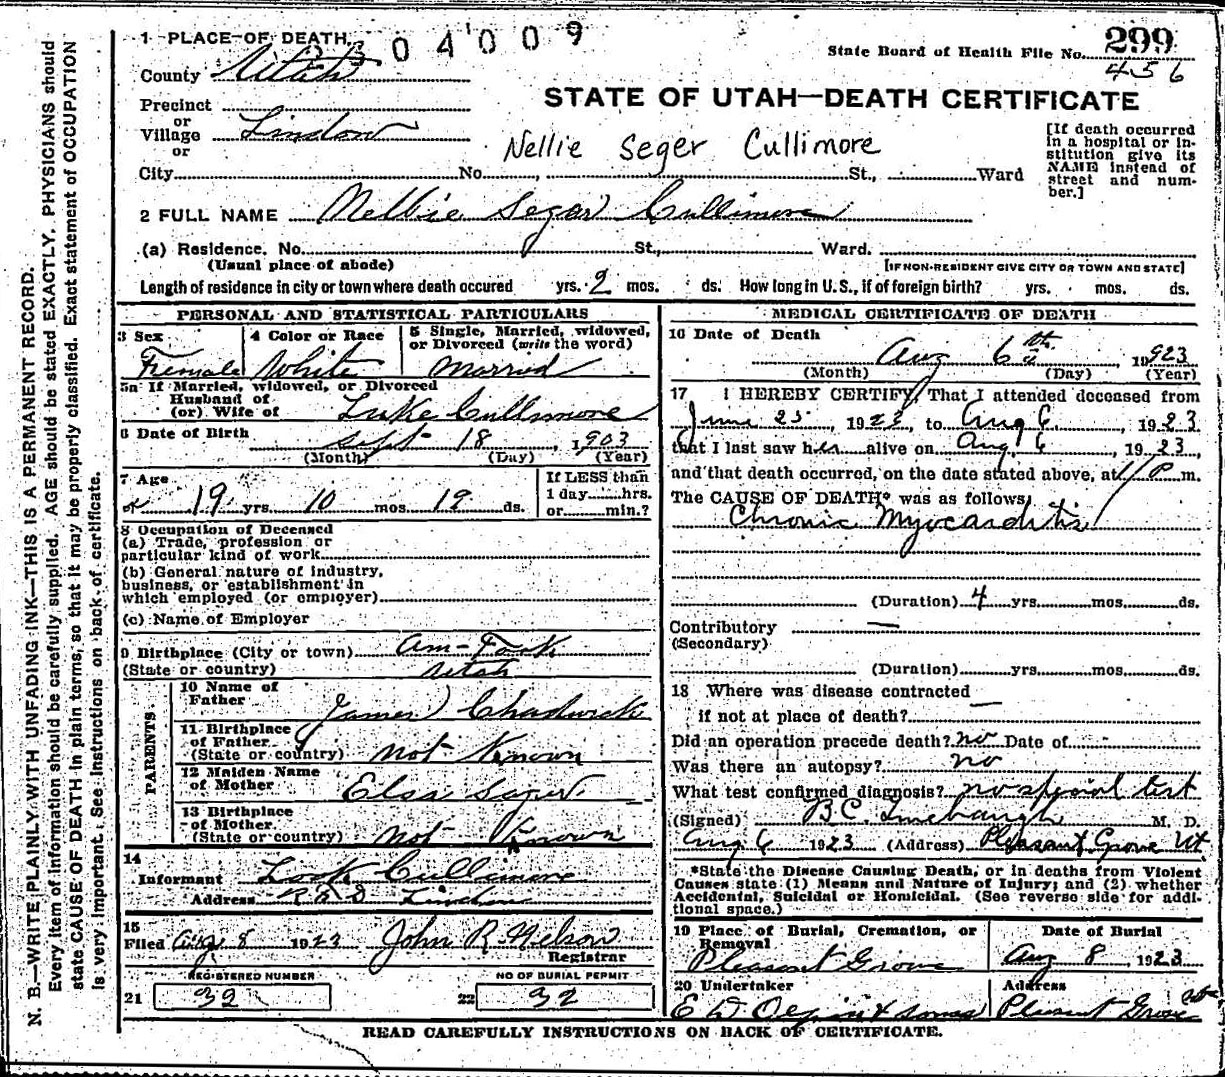 N. B.—WRITE PLAINLY, WITH UNFADING INK—THIS IS A PERMANENT RECORD.
Every item of information should be carefully supplied. AGE should be stated EXACTLY. PHYSICIANS should
state CAUSE OF DEATH in plain terms, so that it may be properly classified. Exact statement of OCCUPATION
is very important. See Instructions on back of certificate.
1 PLACE OF DEATH
04009
State Board of Health File No. 299
456
County Utah
STATE OF UTAH—DEATH CERTIFICATE
Precinct
or
Village Lindon
or
Nellie Seger Cullimore
[If death occurred
in a hospital or in-
stitution give its
NAME instead of
street and num-
ber.]
City No. , St., Ward
2 FULL NAME Nellie Seger Cullimore
(a) Residence. No. St., Ward.
(Usual place of abode) [IF NON-RESIDENT GIVE CITY OR TOWN AND STATE]
Length of residence in city or town where death occured yrs. 9 mos. ds. How long in U. S., if of foreign birth? yrs. mos. ds.
PERSONAL AND STATISTICAL PARTICULARS
3 Sex
Female
4 Color or Race
White
5 Single, Married, widowed,
or Divorced (write the word)
Married
5a If Married, widowed, or Divorced
Husband of
(or) Wife of Luke Cullimore
6 Date of Birth Sept 18 1903
(Month) (Day) (Year)
7 Age
19 yrs. 10 mos. 19 ds.
If LESS than
1 day hrs.
or min.?
8 Occupation of Deceased
(a) Trade, profession or
particular kind of work
(b) General nature of industry,
business, or establishment in
which employed (or employer)
(c) Name of Employer
9 Birthplace (City or town) Am-Fork
(State or country) Utah
PARENTS
10 Name of
Father James Chadwick
11 Birthplace
of Father
(State or country) not Known
12 Maiden Name
of Mother Elsa Seger
13 Birthplace
of Mother
(State or country) not Known
14
Informant Look Cullimore
Address R.F.D Lindon
15
Filed Aug 8 1923 John R. Nelson
Registrar
REGISTERED NUMBER NO OF BURIAL PERMIT
21 32 22 32
MEDICAL CERTIFICATE OF DEATH
16 Date of Death
Aug 6th 1923
(Month) (Day) (Year)
17 I HEREBY CERTIFY, That I attended deceased from
June 25, 1923, to Aug 6, 1923
that I last saw her alive on Aug 6, 1923,
and that death occurred, on the date stated above, at 11 P m.
The CAUSE OF DEATH* was as follows:
Chronic Myocarditis
(Duration) 4 yrs. mos. ds.
Contributory —
(Secondary)
(Duration) yrs. mos. ds.
18 Where was disease contracted —
if not at place of death?
Did an operation precede death? no Date of -
Was there an autopsy? no
What test confirmed diagnosis? no special test
(Signed) B.C. Linebaugh M. D.
Aug 6 1923 (Address) Pleasant Grove Ut
*State the Disease Causing Death, or in deaths from Violent
Causes state (1) Means and Nature of Injury; and (2) whether
Accidental, Suicidal or Homicidal. (See reverse side for addi-
tional space.)
19 Place of Burial, Cremation, or
Removal
Pleasant Grove
Date of Burial
Aug 8, 1923
20 Undertaker
E D Olpin & Sons
Address
Pleasant Grove
READ CAREFULLY INSTRUCTIONS ON BACK OF CERTIFICATE.